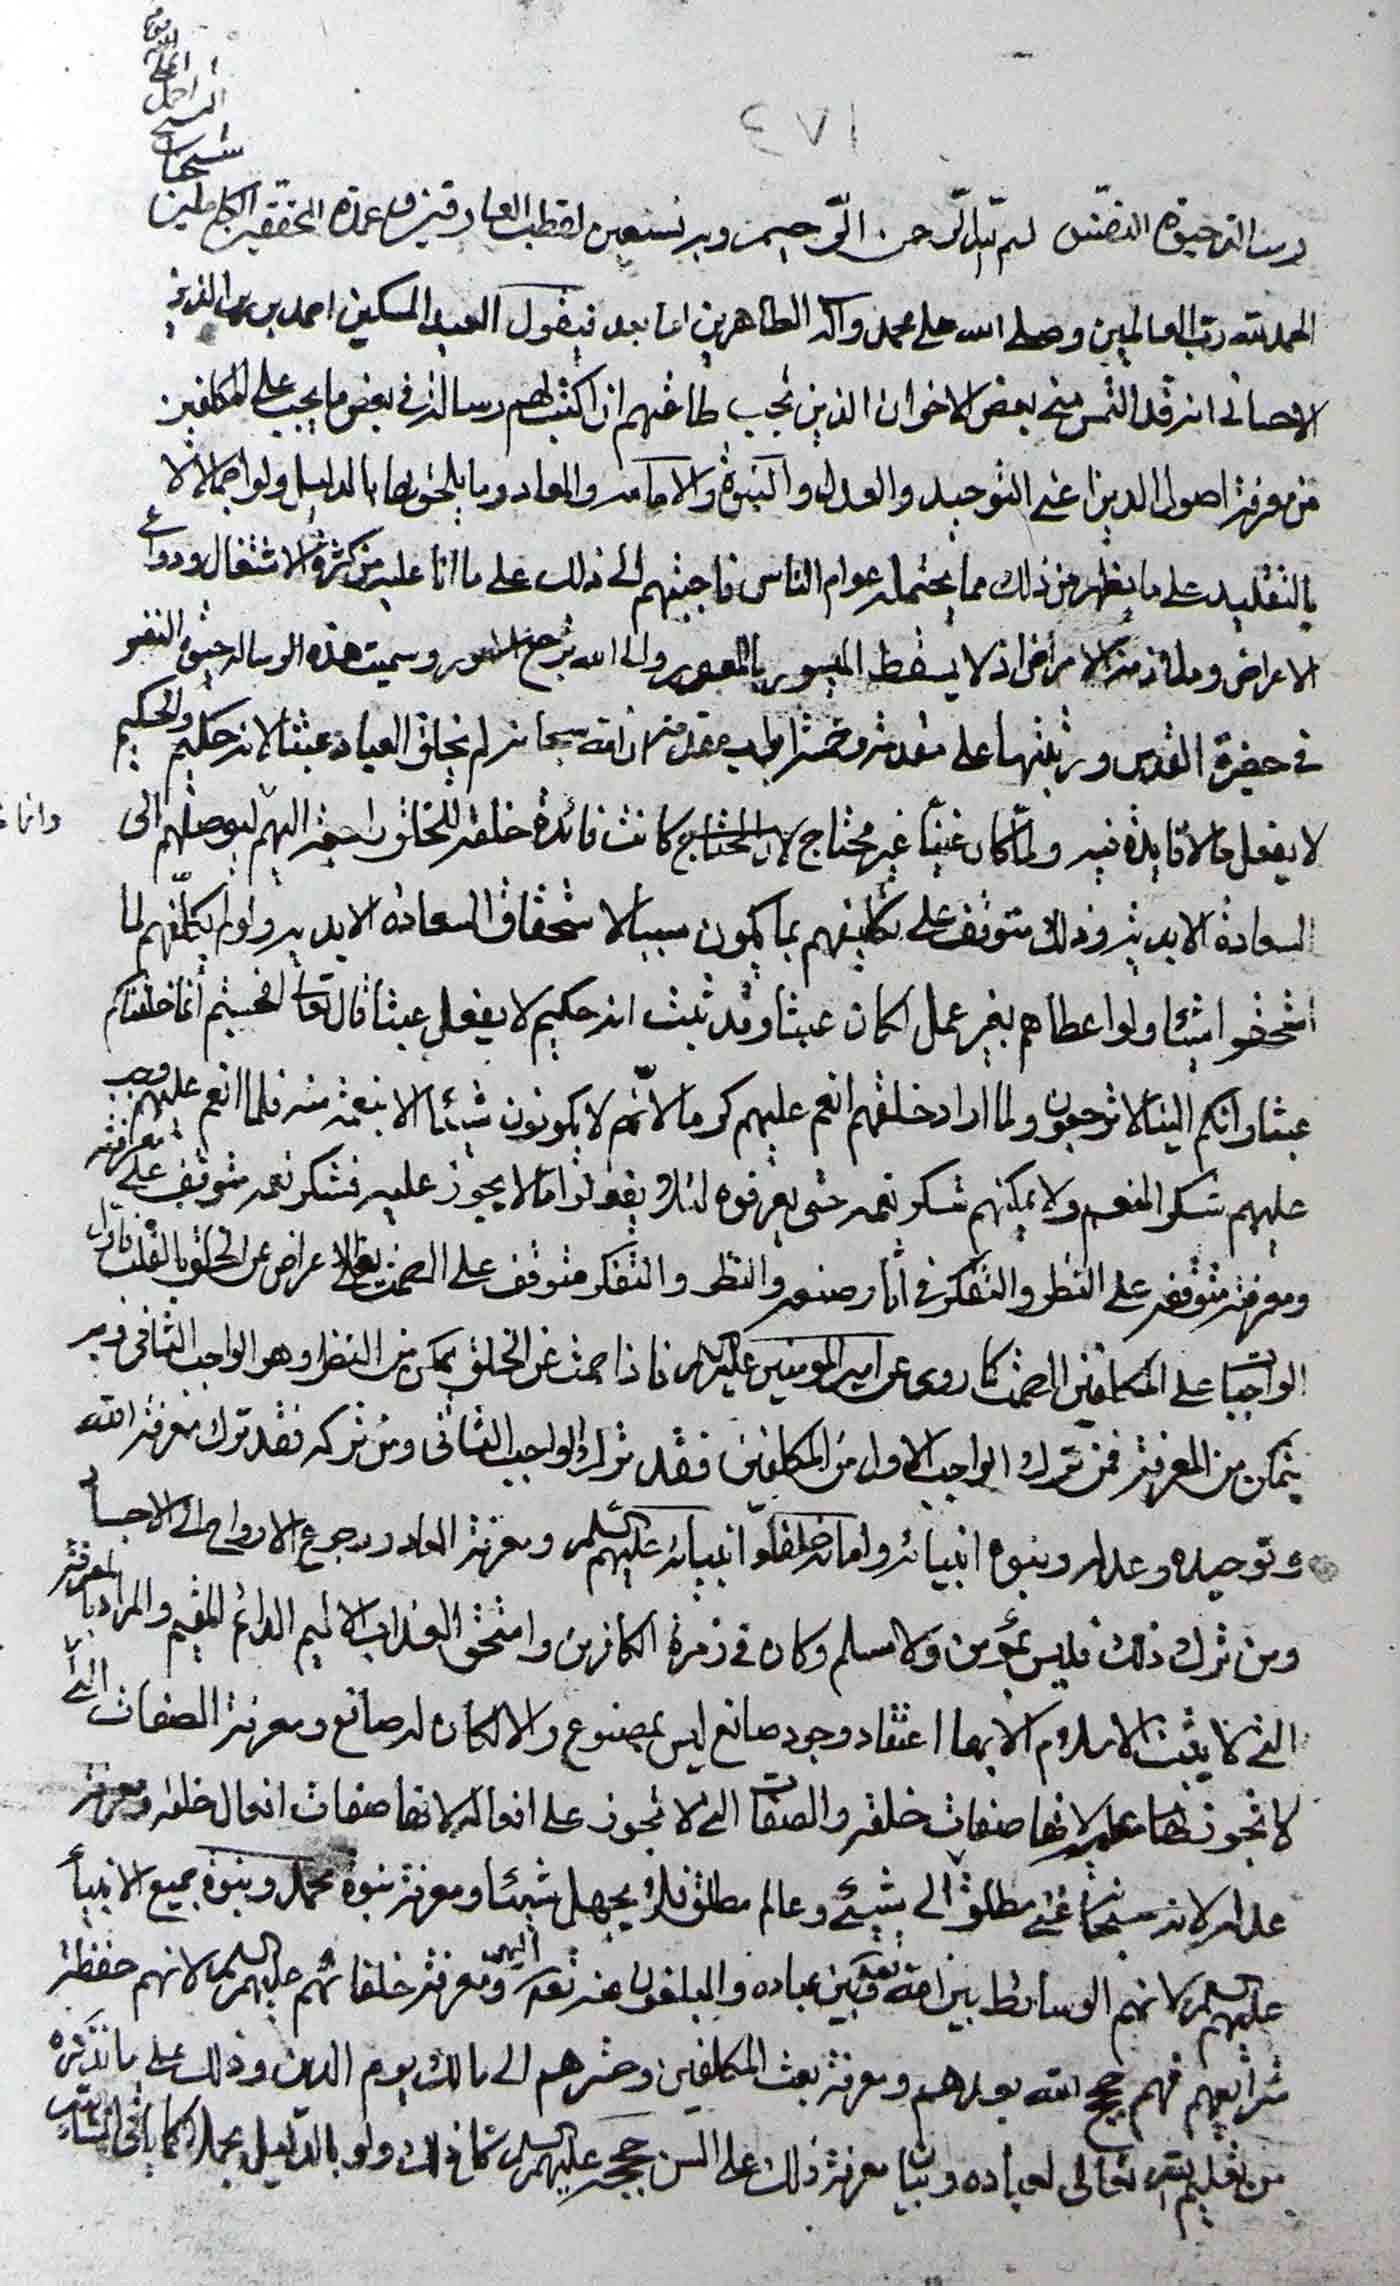 ١٧٤
رسالة حيوة النفس بسم الله الرحمن الرحيم وبه نستعين لقطب العارفين وعمدة المحققين الكاملين
شيخنا الشيخ احمد اعلى الله مقامه
الحمد لله رب العالمين وصلى الله على محمد وآله الطاهرين اما بعد فيقول العبد المسكين احمد بن زين الدين
الاحسائي انه قد التمس مني بعض الاخوان الذين تجب طاعتهم ان اكتب لهم رسالة في بعض ما يجب على المكلفين
من معرفة اصول الدين اعني التوحيد والعدل والنبوة والامامة والمعاد وما يلحق بها بالدليل ولو اجمالا لا
بالتقليد على ما يظهر من ذلك مما يحتمله عوام الناس فاجبتهم الى ذلك على ما انا عليه من كثرة الاشتغال ودواعي
الاعراض وملازمة الامراض اذ لا يسقط الميسور بالمعسور والى الله ترجع الامور وسميت هذه الرسالة حيوة النفس
في حضرة القدس ورتبتها على مقدمة وخمسة ابواب مقدمة ان الله سبحانه لم يخلق العباد عبثا لانه حكيم والحكيم
لا يفعل ما لا فايدة فيه ولما كان غنيا غير محتاج لان المحتاج كانت فائدة خلقه للخلق راجعة اليهم ليوصلهم الى
وانما
السعادة الابدية وذلك متوقف على تكليفهم بما يكون سببا لاستحقاق السعادة الابدية ولو لم يكلفهم لما
استحقوا شيئا ولو اعطاهم بغير عمل لكان عبثا وقد ثبت انه حكيم لا يفعل عبثا قال تعالى افحسبتم انما خلقناكم
عبثا وانكم الينا لا ترجعون ولما اراد خلقهم انعم عليهم كرما لانهم لا يكونون شيئا الا بنعمة منه فلما انعم عليهم وجب
عليهم شكر المنعم ولا يمكنهم شكر نعمه حتى يعرفوه لئلا يفعلوا ما لا يجوز عليه فشكر نعمه متوقف على معرفته
ومعرفته متوقفة على النظر والتفكر في آثار صنعه والنظر والتفكر متوقف على الصمت يعني الاعراض عن الخلق بالقلب فاول
الواجبات على المكلفين الصمت كما روي عن امير المومنين عليه السلام فاذا صمت عن الخلق تمكن من النظر وهو الواجب الثاني وبه
يتمكن من المعرفة فمن ترك الواجب الاول من المكلفين فقد ترك الواجب الثاني ومن تركه فقد ترك معرفة الله
وتوحيده وعدله ونبوة انبيائه وامامة خلفاء انبيائه عليهم السلم ومعرفة المعاد ورجوع الارواح الى الاجساد
ومن ترك ذلك فليس بمؤمن ولا مسلم وكان في زمرة الكافرين واستحق العذاب الاليم الدائم المقيم والمراد بالمعرفة
التي لا يثبت الاسلام الا بها اعتقاد وجود صانع ليس بمصنوع والا لكان له صانع ومعرفة الصفات التي
لا تجوز عليه لانها صفات خلقه والصفات التي لا تجوز على افعاله لانها صفات افعال خلقه ومعرفة
عدله لانه سبحانه غني مطلق الى شيئ وعالم مطلق فلا يجهل شيئا ومعرفة نبوة محمد ونبوة جميع الانبياء
عليهم السلم لانهم الوسائط بين الله تعالى وبين عباده والمبلغون عنه تعالى اليهم ومعرفة خلفائهم عليهم السلم لانهم حفظة
شرائعهم فهم حجج الله بعدهم ومعرفة بعث المكلفين وحشرهم الى مالك يوم الدين وذلك على ما نذكره
من تعليم الله تعالى لعباده وبيان معرفة ذلك على السن حججه عليهم السلم كما في ذلك ولو بالدليل مجملا كما ياتي